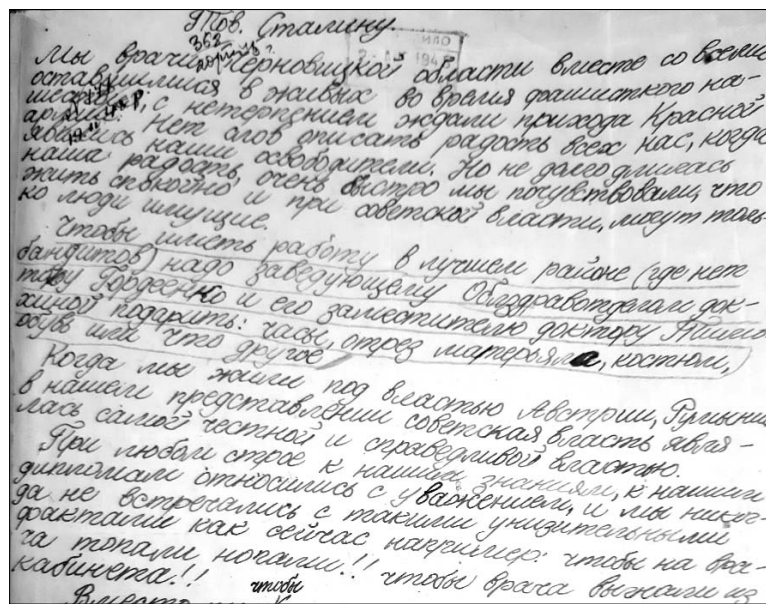 Тов. Сталину.
362
2-
194
Мы врачи Черновицкой области вместе со всеми
оставшимися в живых во время фашисткого на-
шествия, с нетерпением ждали прихода Красной
армии. Нет слов описать радость всех нас, когда
явились наши освободители. Но не долго длилась
наша радость, очень быстро мы почувствовали, что
жить спокойно и при советской власти, могут толь-
ко люди имущие.
Чтобы иметь работу в лучшем районе (где нет
бандитов) надо заведующему Облздравотделом док-
тору Гордеенко и его заместителю доктору
подарить: часы, отрез матерьяла, костюм,
обувь или что другое
Когда мы жили под властью Австрии, Румынии
в нашем представлении советская власть явля-
лась самой честной и справедливой властью.
При любом строе к нашим знаниям, к нашим
дипломам относились с уважением, и мы никог-
да не встречались с такими унизительными
фактами как сейчас например: чтобы на вра-
ча топали ногами!! чтобы врача выгнали из
кабинета!!
Вместо чтобы